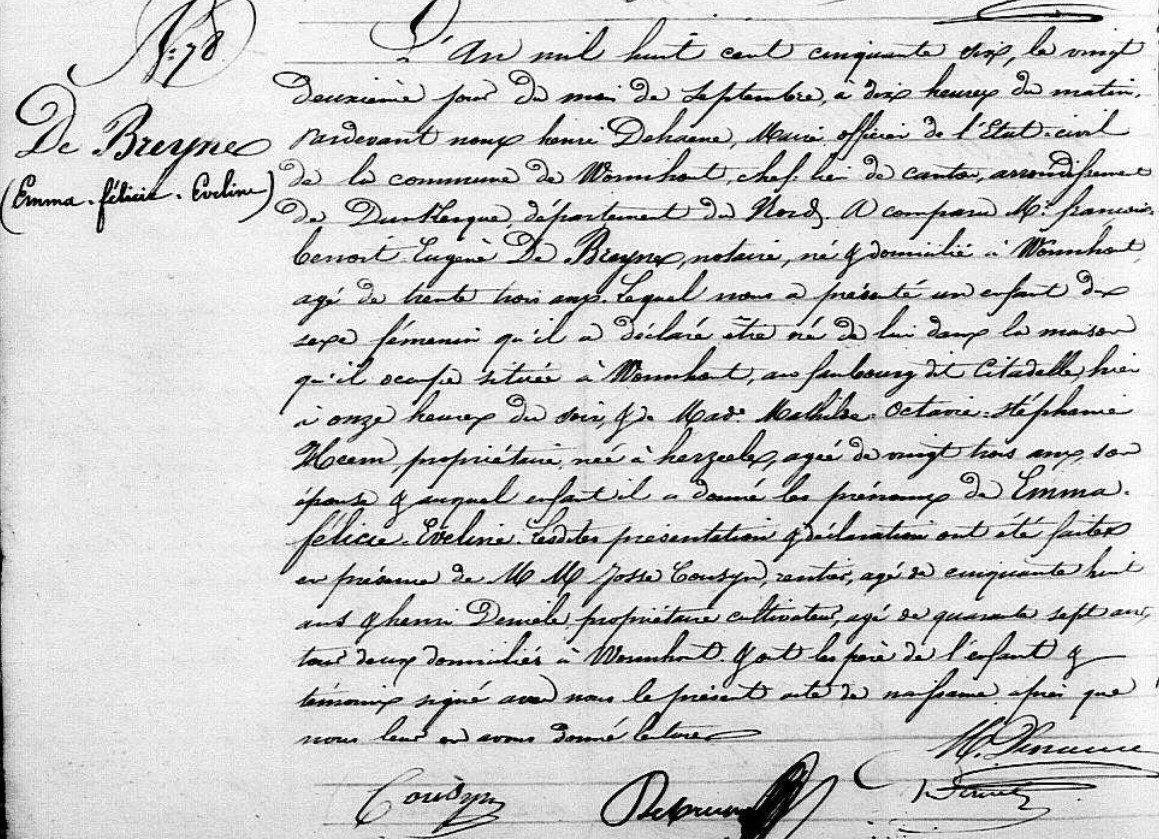 N° 78
De Breyne
(Emma-félicie-Eveline)
L'An mil huit cent cinquante six, le vingt
deuxième jour du mois de Septembre, à dix heures du matin,
Pardevant nous henri Dehaene, Maire officier de l'Etat-civil
de la commune de Wormhout, chef-lieu de canton, arrondissement
de Dunkerque, département du Nord. A comparu Mr. françois-
benoit-Eugène De Breyne, notaire, né & domicilié à Wormhout,
agé de trente trois ans. Lequel nous a présenté un enfant du
sexe féminin qu'il a déclaré être né de lui dans la maison
qu'il occupe située à Wormhout, au faubourg dit Citadelle, hier
à onze heures du soir, & de Made. Mathilde-Octavie-Stéphanie
propriétaire, née à herzeele, agée de vingt trois ans, son
épouse & auquel enfant il a donné les prénoms de Emma-
félicie-Eveline. Lesdites présentation & déclaration ont été faites
en présence de MM Josse Cousyn, rentier, agé de cinquante huit
ans & henri propriétaire cultivateur, agé de quarante sept ans,
tous deux domiciliés à Wormhout. & ont les père de l'enfant &
témoins signé avec nous le présent acte de naissance après que
nous leur en avons donné lecture
Cousyn